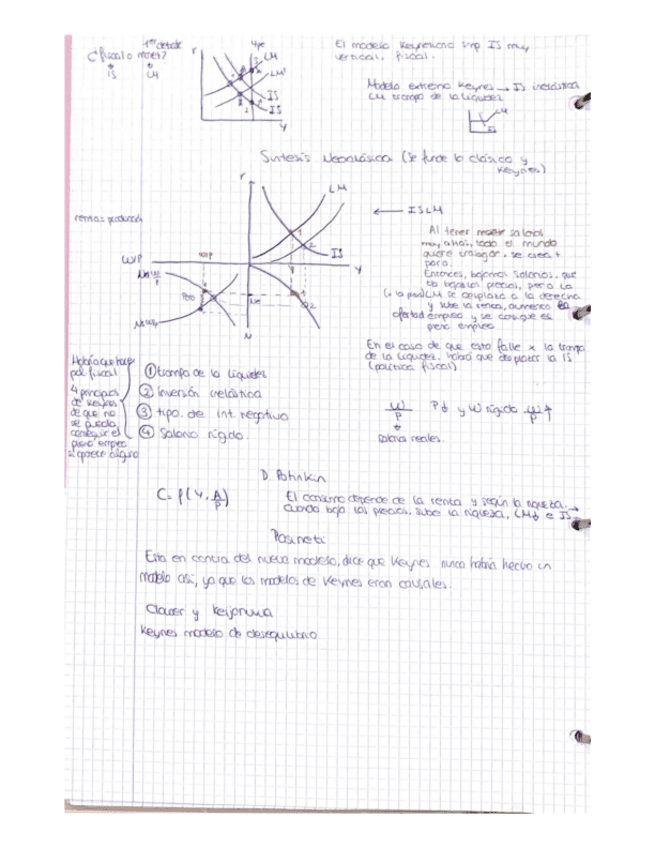 1er debate
¿fiscal o monet?
IS LM
r
Ype
LM
LM'
IS
IS
Y
El modelo Keynesiano sup IS muy
vertical, fiscal.
Modelo extremo Keynes → IS inelástica
LM trampa de la liquidez
LM
IS
Síntesis Neoclásica (se funde lo clásico y
Keynes)
r
LM
← ISLM
renta = producción
W/P
IS
Y
1
2
Al tener salarios
muy altos, todo el mundo
quiere trabajar, se crea +
paro.
Entonces, bajamos salarios, que
bajar los precios, pero la
LM se desplaza a la derecha
y sube la renta, aumenta la
empleo y se consigue el
pleno empleo
Paro
No
N
2
En el caso de que esto falle x la trampa
de la liquidez, habrá que desplazar la IS
(política fiscal)
Habría que hacer
pol fiscal
4 principios
de Keynes
de que no
se pueda
conseguir el
pleno empleo
si aparece alguno
① trampa de la liquidez
② Inversión inelástica
③ tipo de int. negativo
④ Salario rígido.
W/P P↓ y W rígido W/P ↑
salarios reales.
D. Patinkin
El consumo depende de la renta y según la riqueza. →
Cuando baja los precios, sube la riqueza, LM↓ e IS
Pasinetti
Esta en contra del nuevo modelo, dice que Keynes nunca había hecho un
modelo así, ya que los modelos de Keynes eran causales.
Clower y
Keynes modelo de desequilibrio